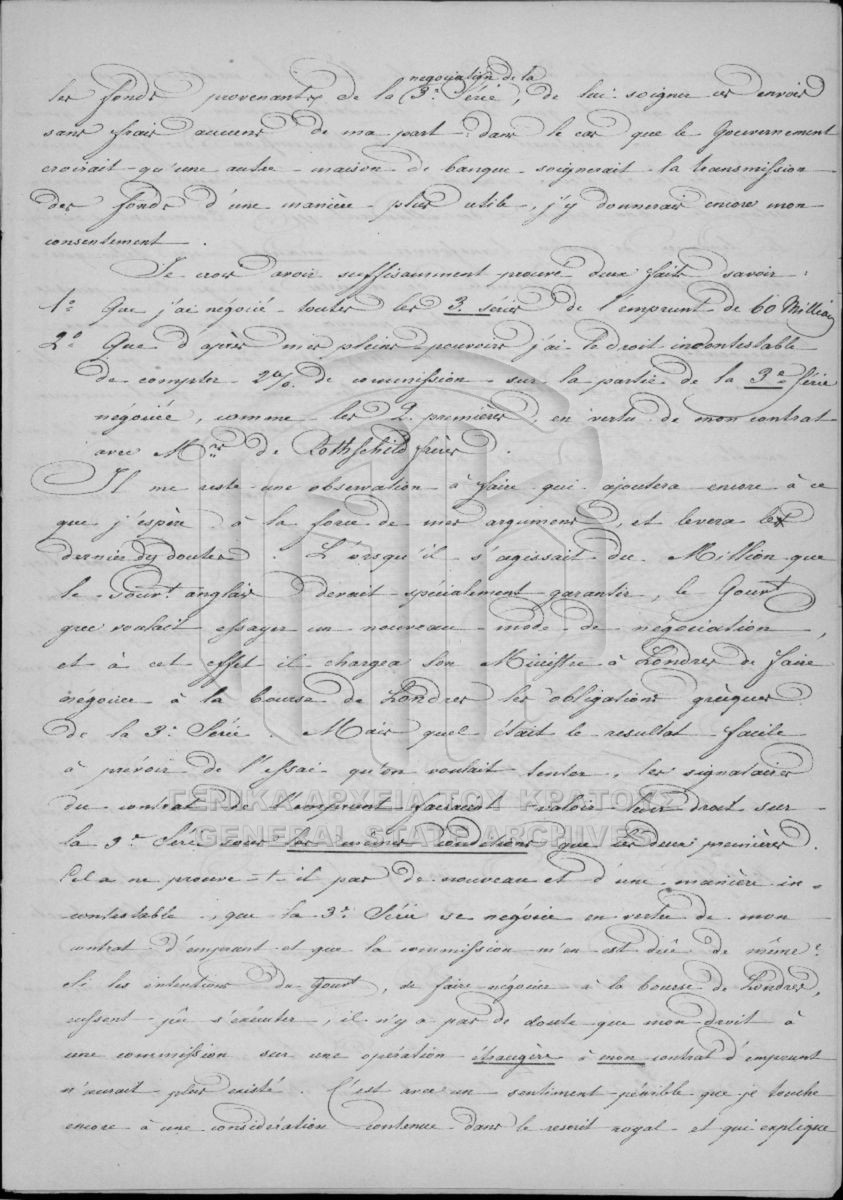 negociation de la
les fonds provenants de la 3e Série, de lui soigner ces envois
sans frais aucuns de ma part: dans le cas que le Gouvernement
croirait qu'une autre maison de banque soignerait la transmission
des fonds d'une manière plus utile, j'y donnerais encore mon
consentement.
Je crois avoir suffisamment prouvé deux faits savoir:
1o Que j'ai négocié toutes les 3. séries de l'emprunt de 60 Millions
2o Que d'après mes pleins pouvoirs j'ai le droit incontestable
de compter 2% de commission sur la partie de la 3e Série
négociée, comme les 2. premières, en vertu de mon contrat
avec Mrs de Rothschild frères.
Il me reste une observation à faire qui ajoutera encore à ce
que j'espère à la force de mes argumens, et levera les
derniers doutes. L'orsqu'il s'agissait du Million que
le Gouvt anglais devait spécialement garantir, le Gouvt
grec voulait essayer un nouveau mode de négociation,
et à cet effet il chargea son Ministre à Londres de faire
négocier à la bourse de Londres les obligations grèques
de la 3e Série. Mais quel était le resultat facile
à prévoir de l'essai qu'on voulait tenter, les signataires
du contrat de l'emprunt faisaient valoir leur droit sur
la 3e Série sous les mêmes conditions que les deux premières.
Cela ne prouve-t-il pas de nouveau et d'une manière in=
contestable, que la 3e Série se négocie en vertu de mon
contrat d'emprunt et que la commission m'en est dûe de même.
Si les intentions du Gouvt, de faire négocier à la bourse de Londres,
eussent pû s'exécuter, il n'y a pas de doute que mon droit à
une commission sur une opération étrangère à mon contrat d'emprunt
n'aurait plus existé. C'est avec un sentiment pénible que je touche
encore à une considération contenue dans le rescrit royal et qui explique
ΓΕΝΙΚΑ ΑΡΧΕΙΑ ΤΟΥ ΚΡΑΤΟΥΣ
GENERAL STATE ARCHIVES